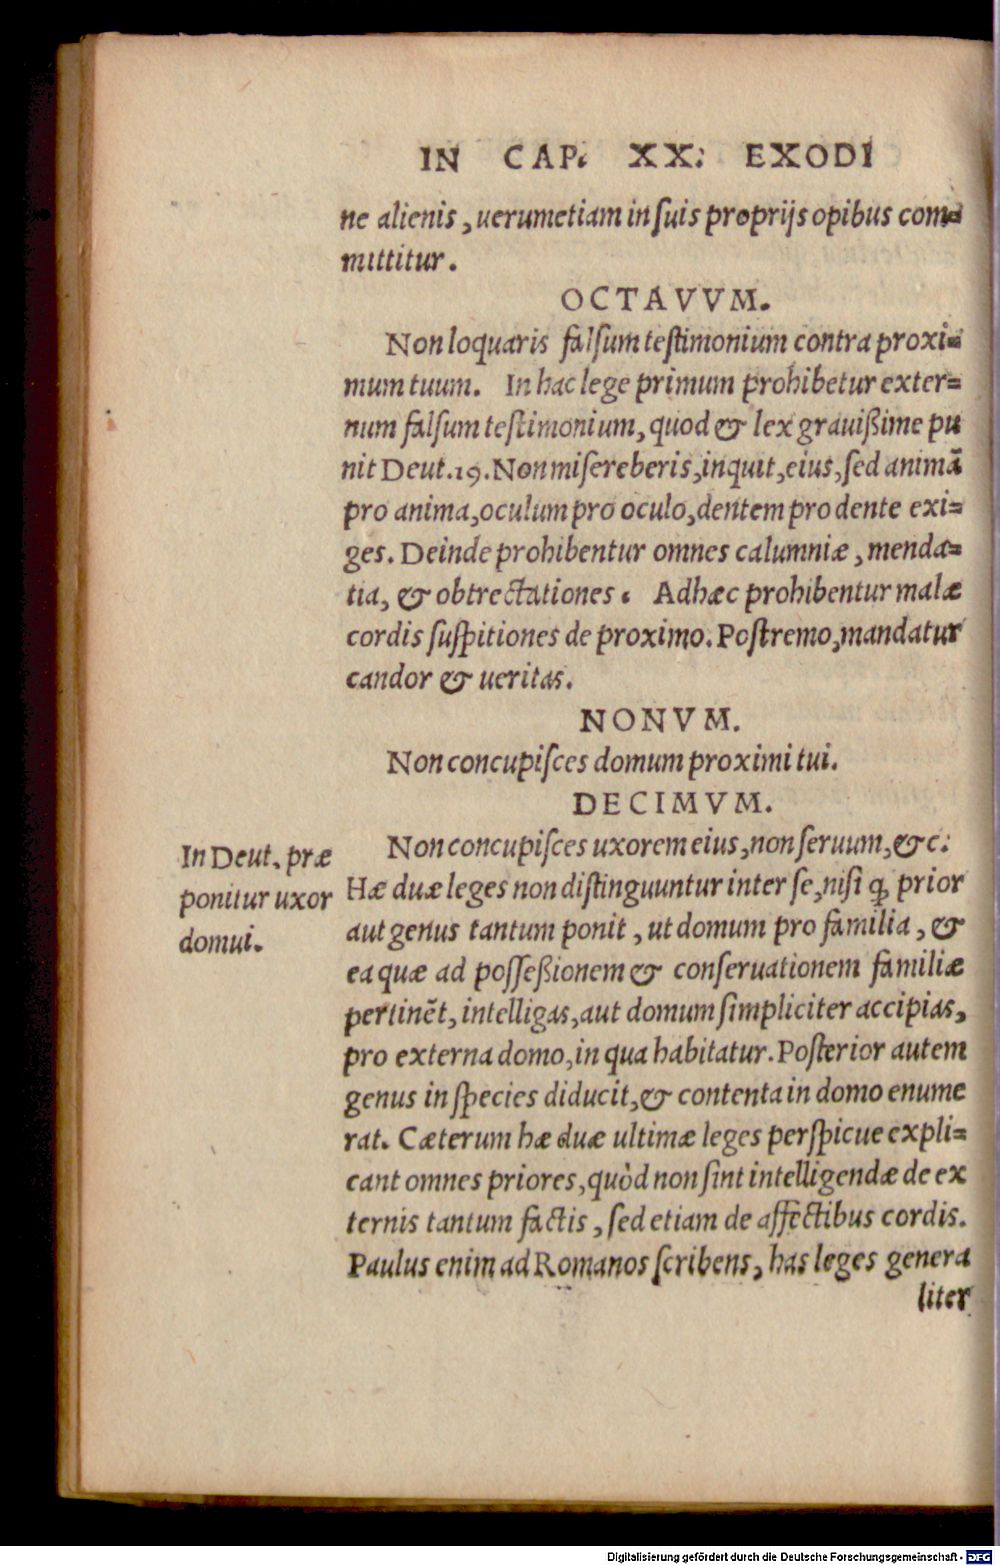 IN CAP. XX. EXODI
ne alienis, uerumetiam in ſuis proprijs opibus com=
mittitur.
OCTAVVM.
Non loquaris falſum teſtimonium contra proxi=
mum tuum. In hac lege primum prohibetur exter=
num falſum teſtimonium, quod & lex grauißime pu
nit Deut.19. Non miſereberis, inquit, eius, ſed animã
pro anima, oculum pro oculo, dentem pro dente exi=
ges. Deinde prohibentur omnes calumniæ, menda=
tia, & obtrectationes. Adhæc prohibentur malæ
cordis ſuſpitiones de proximo. Poſtremo, mandatur
candor & ueritas.
NONVM.
Non concupiſces domum proximi tui.
DECIMVM.
Non concupiſces uxorem eius, non ſeruum, &c.
In Deut. præ
ponitur uxor
domui.
Hæ duæ leges non diſtinguuntur inter ſe, niſi ꝙ prior
aut genus tantum ponit, ut domum pro familia, &
ea quæ ad poſſeßionem & conſeruationem familiæ
pertinẽt, intelligas, aut domum ſimpliciter accipias,
pro externa domo, in qua habitatur. Poſterior autem
genus in ſpecies diducit, & contenta in domo enume
rat. Cæterum hæ duæ ultimæ leges perſpicue expli=
cant omnes priores, quòd non ſint intelligendæ de ex
ternis tantum factis, ſed etiam de affectibus cordis.
Paulus enim ad Romanos ſcribens, has leges genera
liter
Digitalisierung gefördert durch die Deutsche Forschungsgemeinschaft - DFG